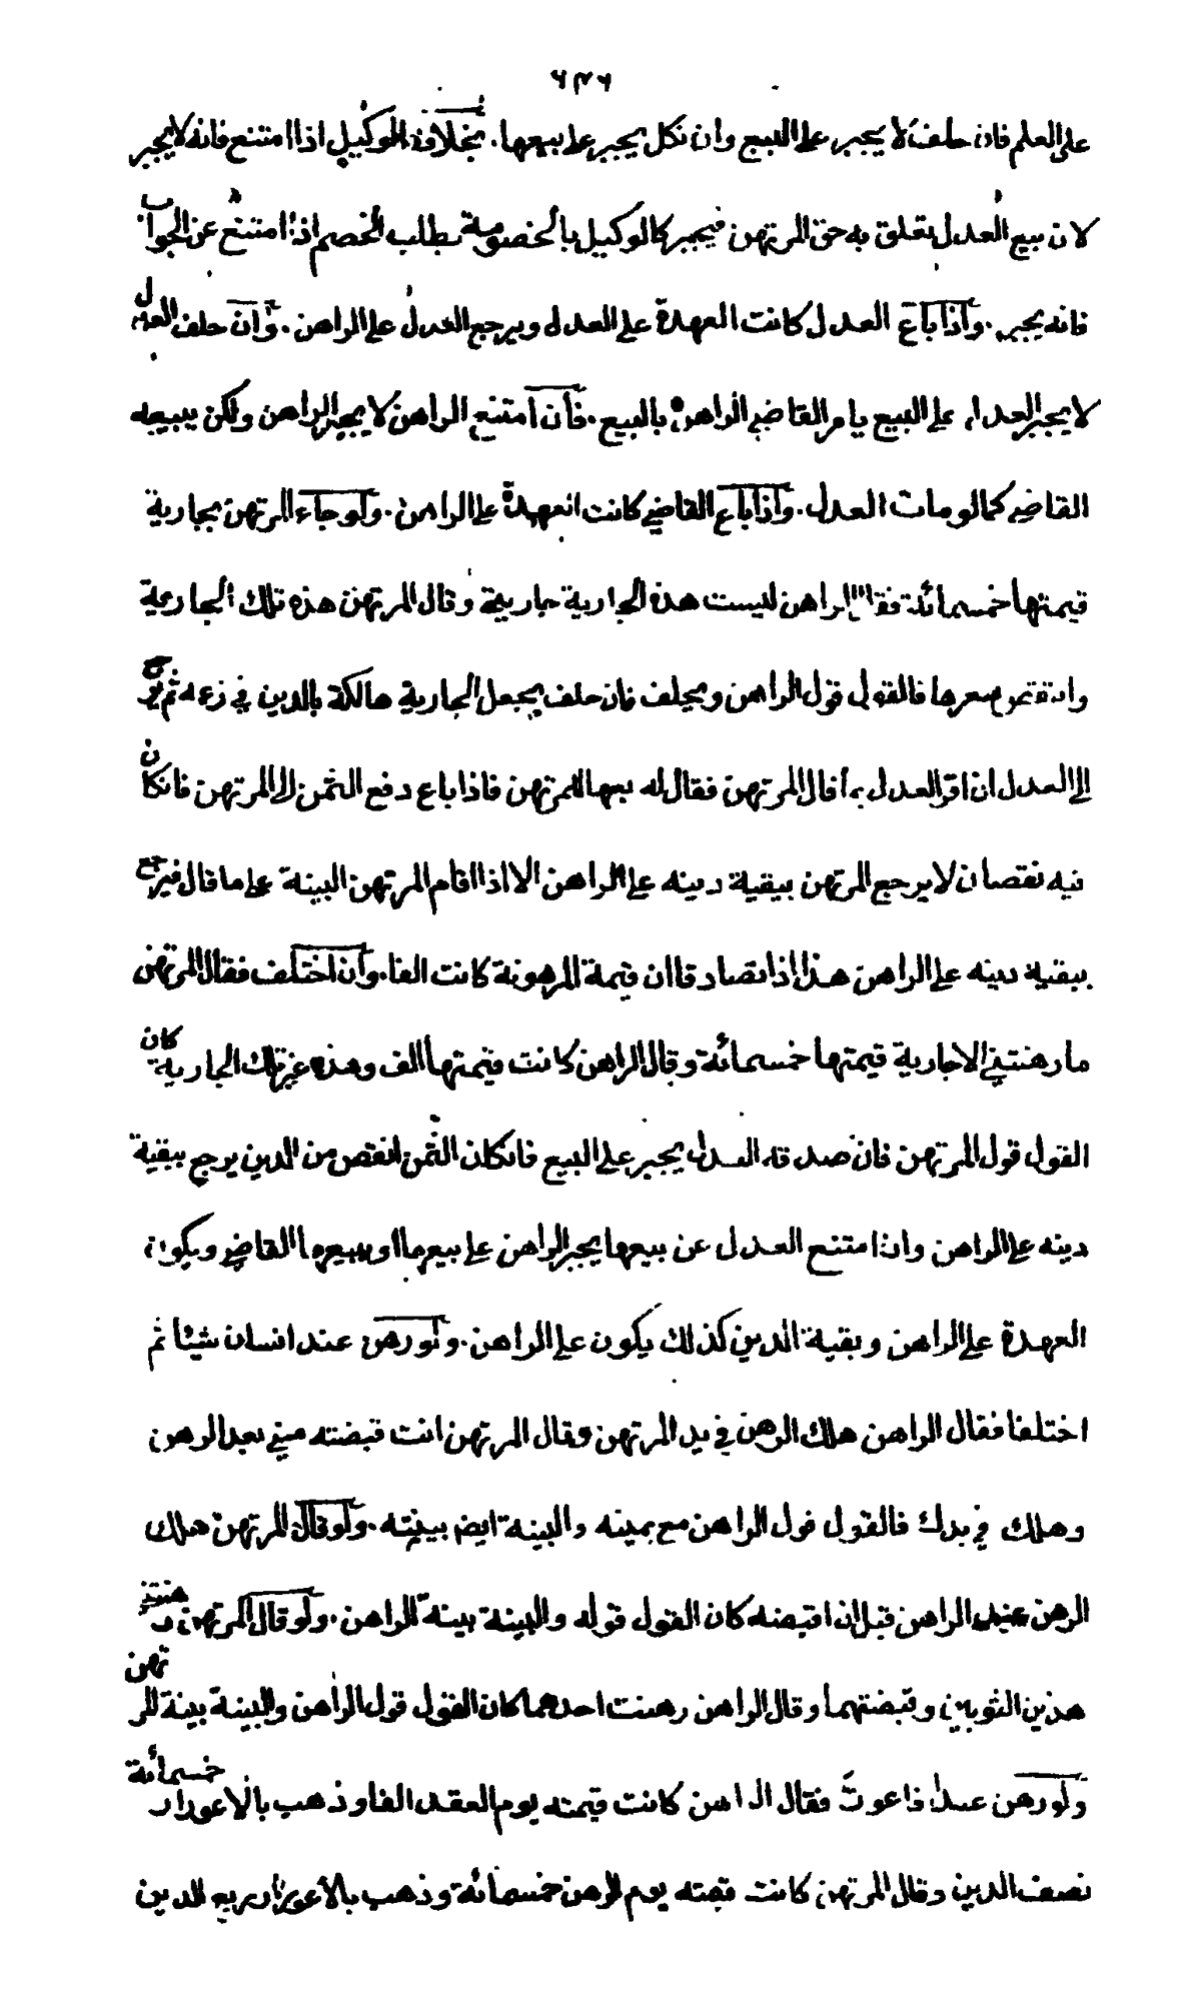 ٦٤٦
على العلم فان حلف لا يجبر على البيع وان نكل يجبر على بيعها. بخلاف الوكيل اذا امتنع فانه لا يجبر
لان بيع العدل تعلق به حق المرتهن فيجبر كالوكيل بالخصومة بطلب الخصم اذا امتنع عن الجواب
فانه يجبر. واذا باع العدل كانت العهدة على العدل ويرجع العدل على الراهن. وان حلف العدل
لا يجبر العدل على البيع يامر القاضي الراهن بالبيع. فان امتنع الراهن لا يجبر الراهن ولكن يبيعه
القاضي كما لو مات العدل. واذا باع القاضي كانت العهدة على الراهن. ولو جاء المرتهن بجارية
قيمتها خمسمائة فقال الراهن ليست هذه الجارية جاريتي وقال المرتهن هذه تلك الجارية
وانتقص سعرها فالقول قول الراهن ويحلف فان حلف يجعل الجارية هالكة بالدين في زعمه ثم يرجع
الى العدل ان اقر العدل بما قال المرتهن فقال له بعها للمرتهن فاذا باع دفع الثمن الى المرتهن فان كان
فيه نقصان لا يرجع المرتهن ببقية دينه على الراهن الا اذا اقام المرتهن البينة على ما قال فيرجع
ببقية دينه على الراهن هذا اذا تصادقا ان قيمة المرهونة كانت الفا. وان اختلف فقال المرتهن
ما رهنتني الا جارية قيمتها خمسمائة وقال الراهن كانت قيمتها الف وهذه غير تلك الجارية كان
القول قول المرتهن فان صدقه العدل يجبر على البيع فان كان الثمن انقص من الدين يرجع ببقية
دينه على الراهن واذا امتنع العدل عن بيعها يجبر الراهن على بيعها او يبيعها القاضي ويكون
العهدة على الراهن وبقية الدين كذلك يكون على الراهن. ولو رهن عند انسان شيئا ثم
اختلفا فقال الراهن هلك الرهن في يد المرتهن وقال المرتهن انت قبضته مني بعد الرهن
وهلك في يدك فالقول قول الراهن مع يمينه والبينة ايضا بينته. ولو قال المرتهن هلك
الرهن عند الراهن قبل ان اقبضه كان القول قوله والبينة بينة الراهن. ولو قال المرتهن رهنتني
هذين الثوبين وقبضتهما وقال الراهن رهنت احدهما كان القول قول الراهن والبينة بينة المرتهن
ولو رهن عبدا فاعور فقال الراهن كانت قيمته يوم العقد الفا وذهب بالاعورار خمسمائة
نصف الدين وقال المرتهن كانت قيمته يوم الرهن خمسمائة وذهب بالاعورار ربع الدين